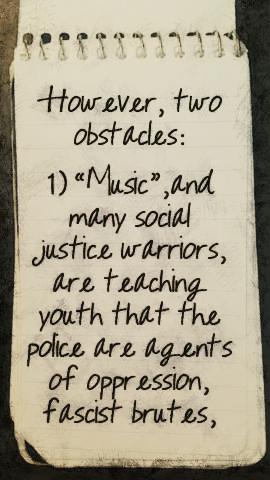 However, two
obstacles:
1) “Music”, and
many social
justice warriors,
are teaching
youth that the
police are agents
of oppression,
fascist brutes,